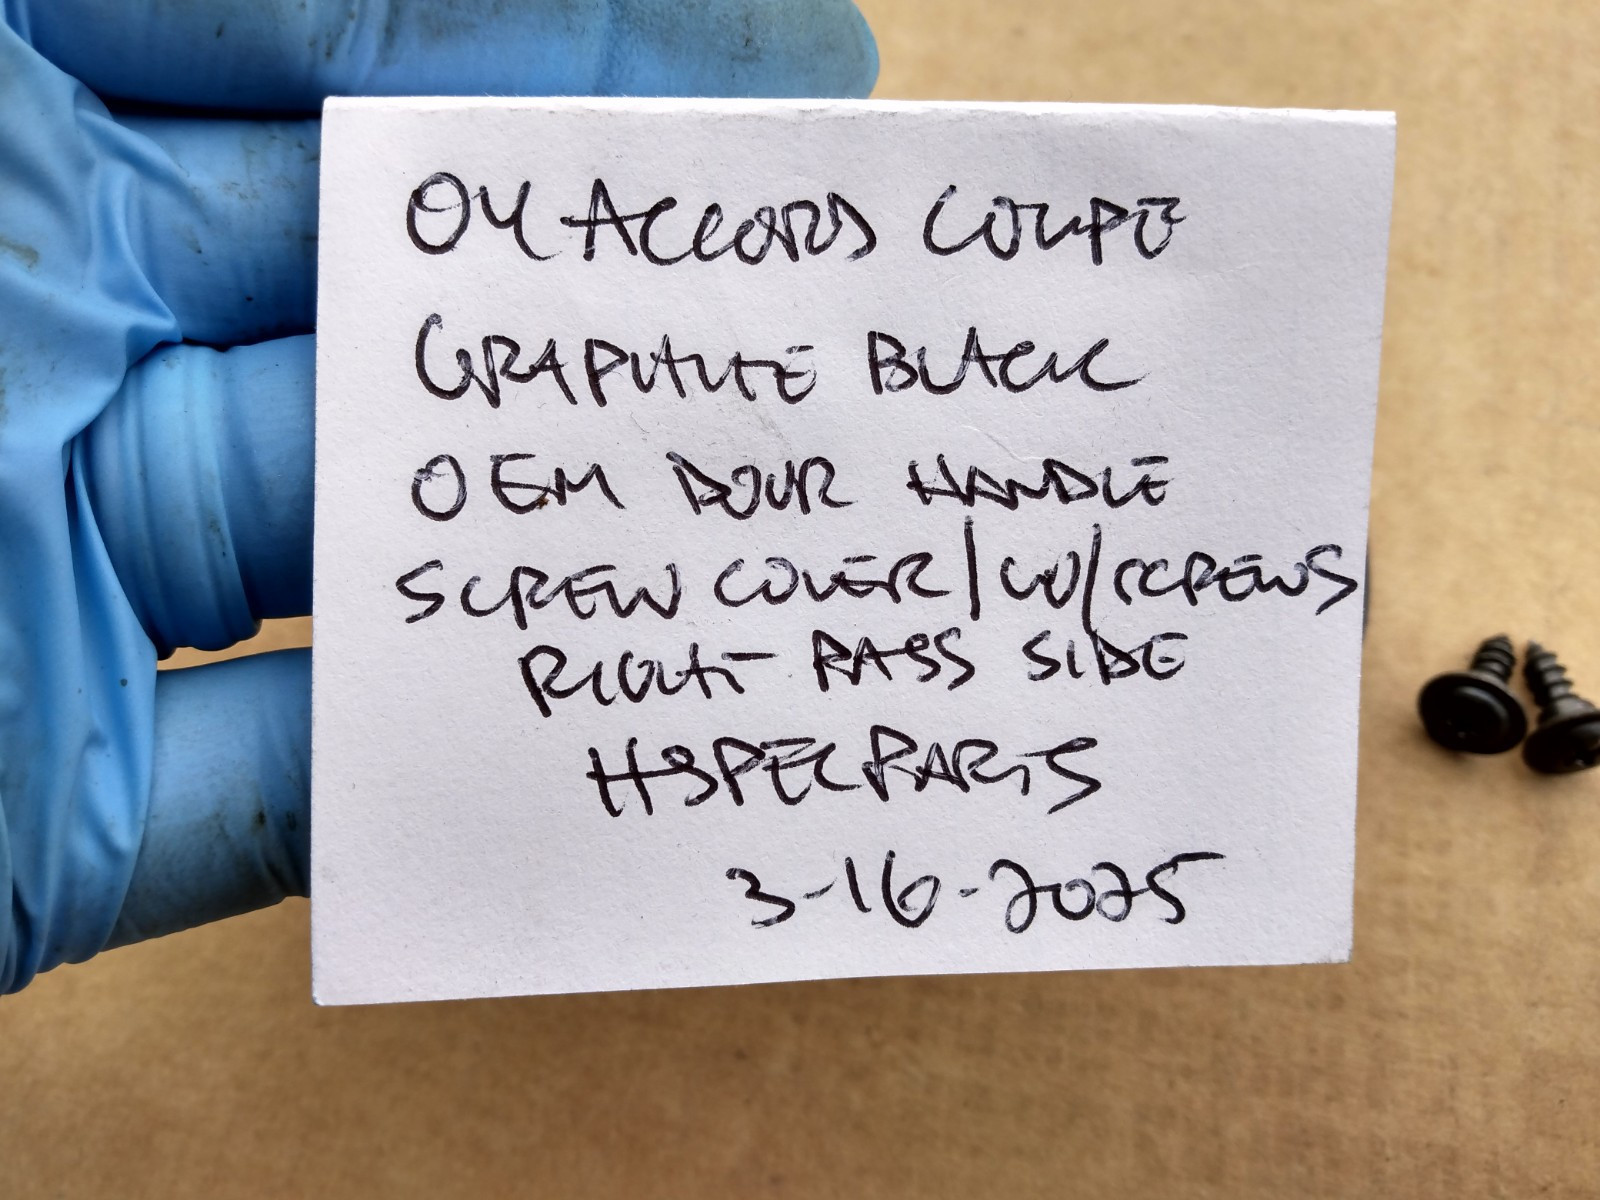 04 ACCORD COUPE
GRAPHITE BLACK
OEM DOOR HANDLE
SCREW COVER/W/SCREWS
RIGHT PASS SIDE
HSPECPARTS
3-16-2025